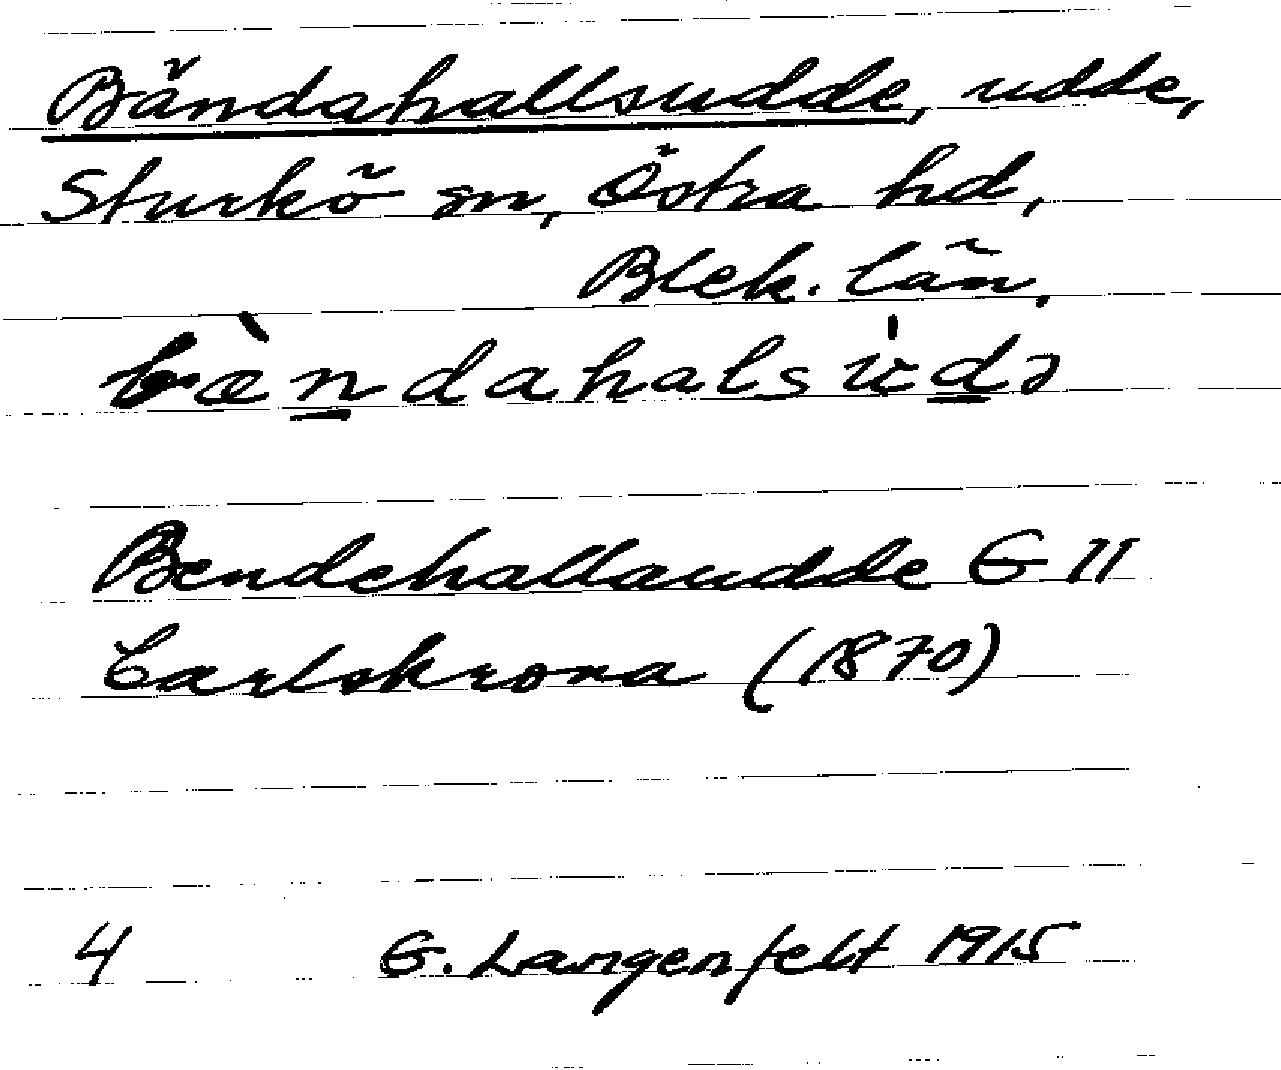 Bändahallsudde, udde,
Sturkö sn, Östra hd,
Blek. län.
bæ̀ndahalsùdə
Bendehallaudde G II
Carlskrona (1870)
4 G. Langenfelt 1915